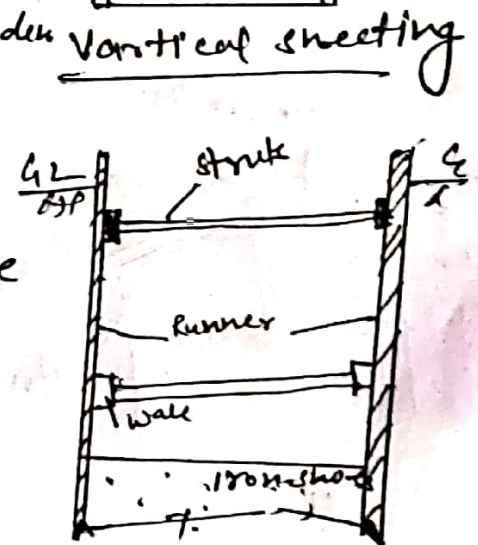 Vartical sheeting
strut
GL
e
Runner
Wale
Iron shoe